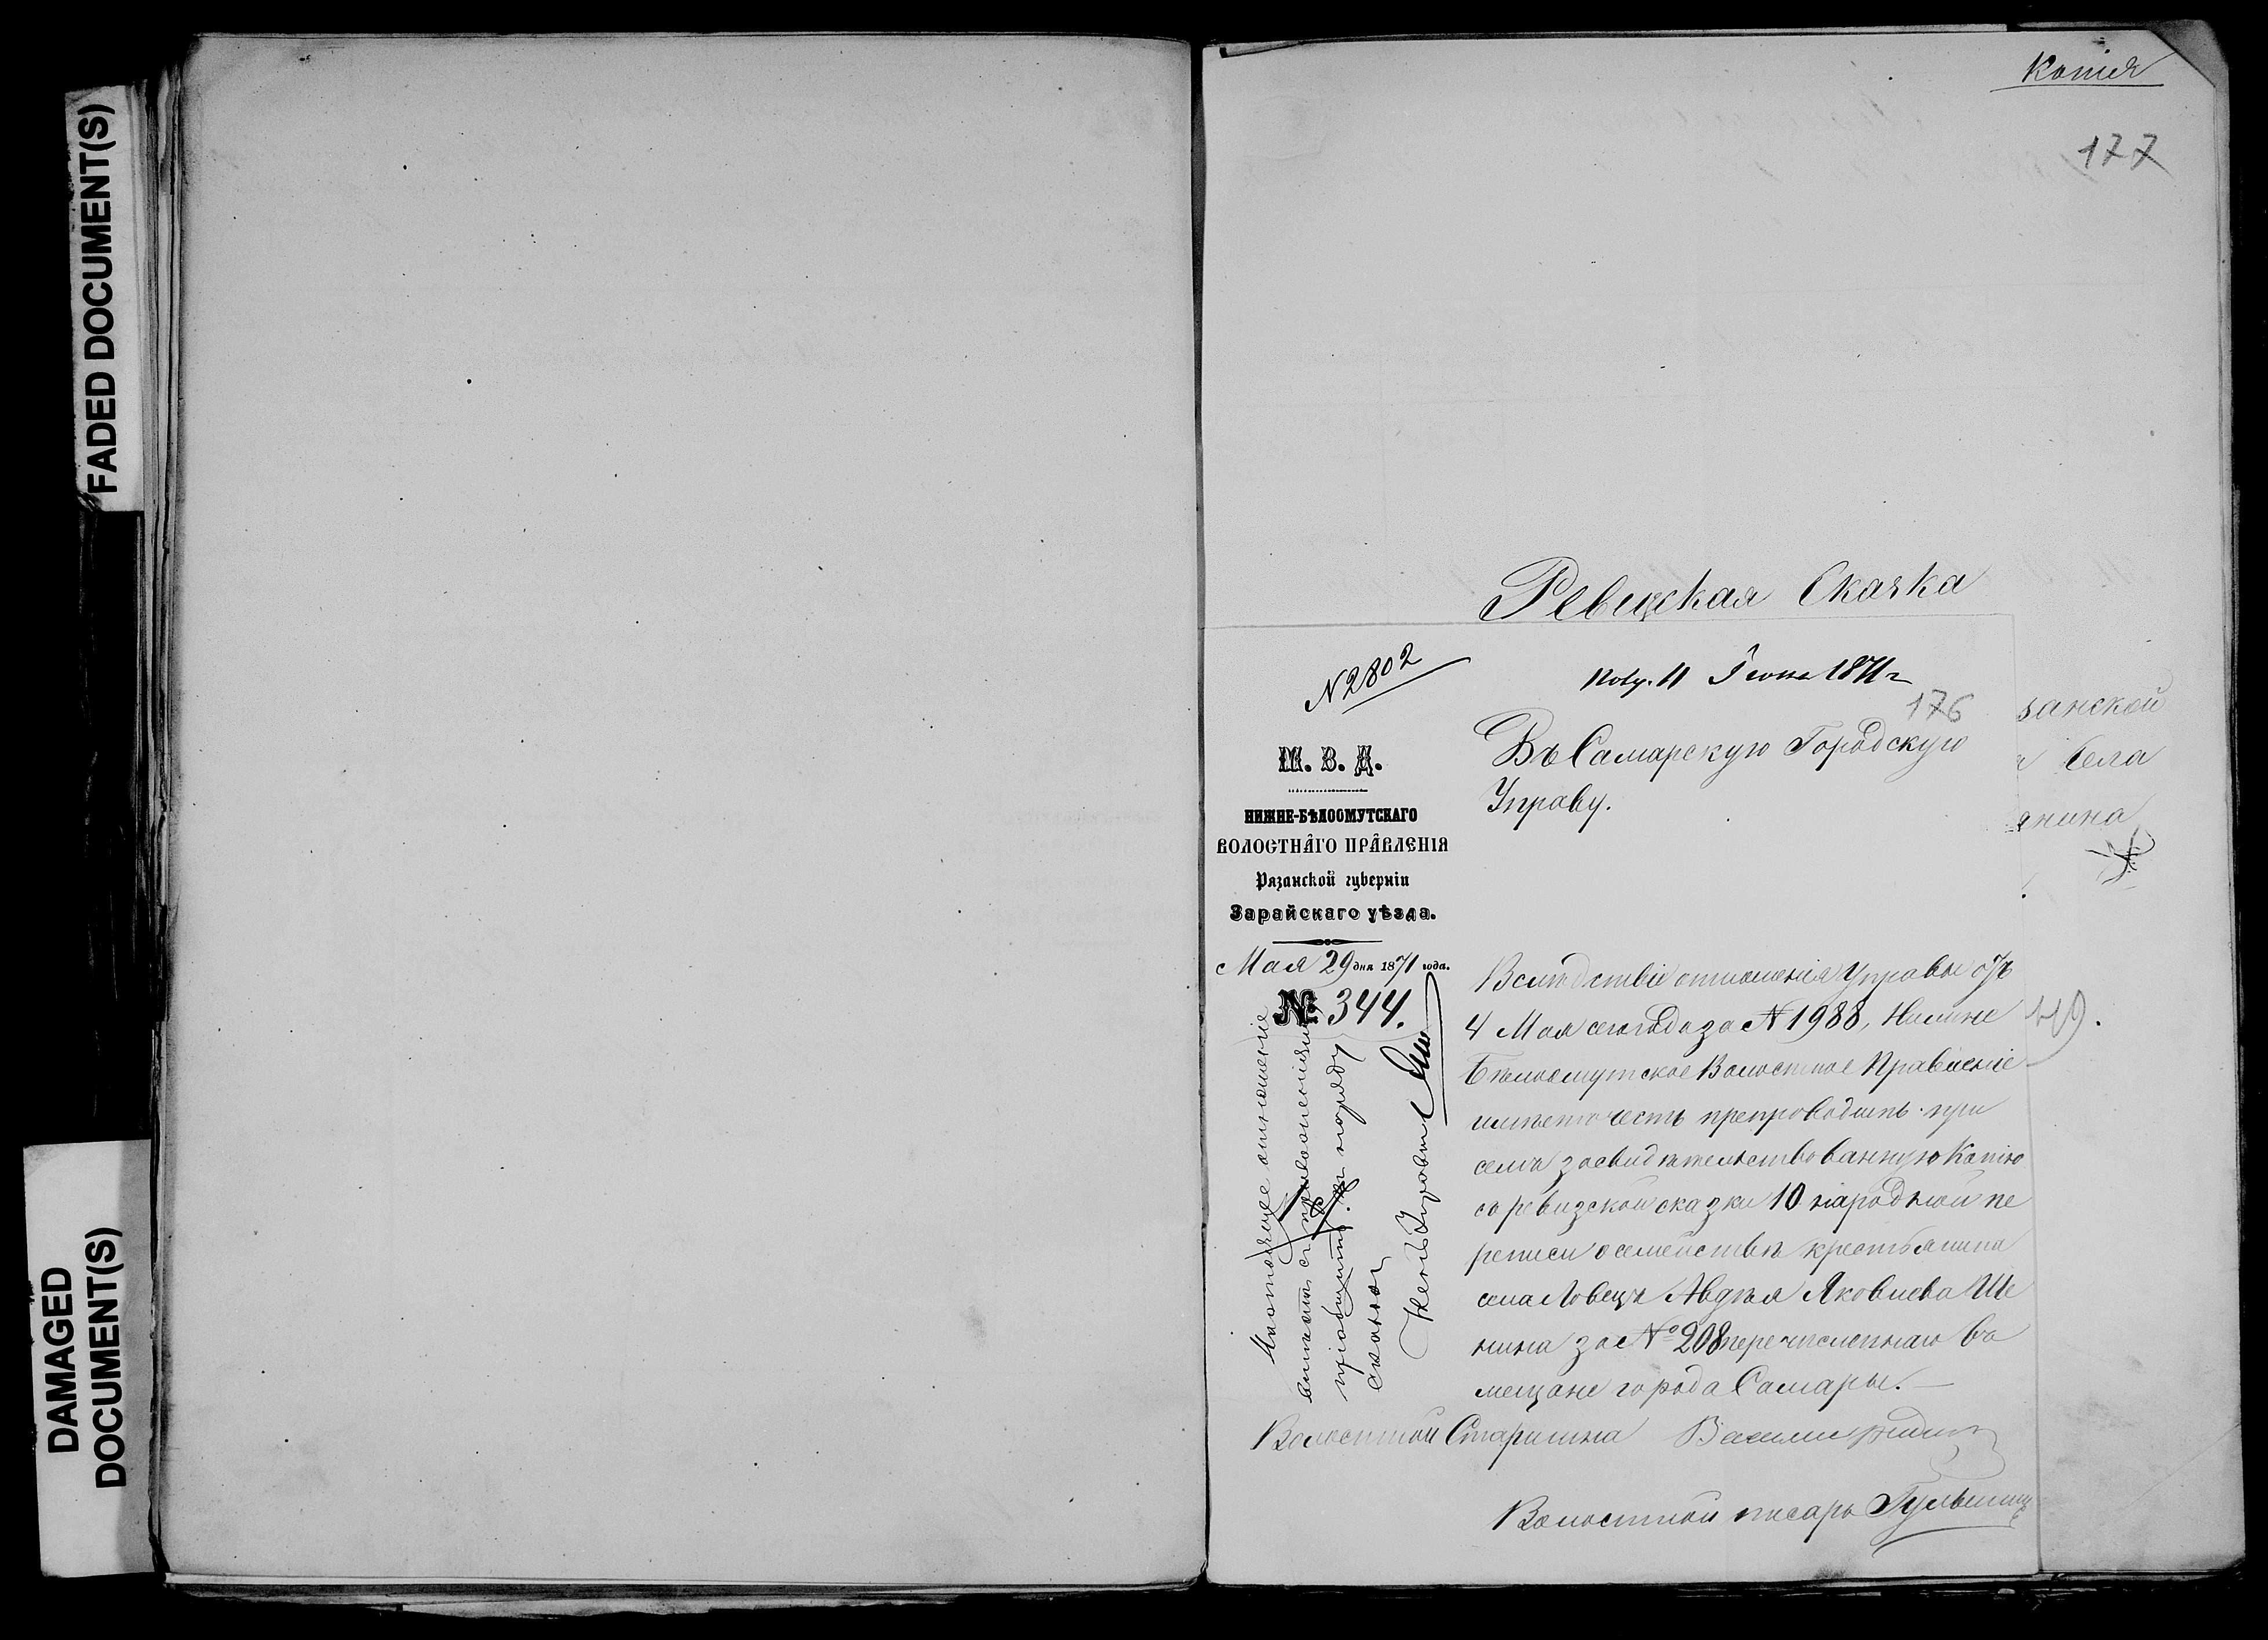 FADED DOCUMENT(S)
DAMAGED
DOCUMENT(S)
Копія
177
Ревизская Сказка
№ 2802
Полу. 11 Іюня 1871 г
176
занской
Села
янина
М. В. Д.
НИЖНЕ-БѢЛООМУТСКАГО
ВОЛОСТНАГО ПРАВЛЕНІЯ
Рязанской губерніи
Зарайскаго уѣзда.
Мая 29 дня 1871 года.
№ 344.
Въ Самарскую Городскую
Управу.
Вслѣдствіе отношенія Управы отъ
4 Мая сего года за № 1988, Нижне
Бѣлоомутское Волостное Правленіе
имѣетъ честь препроводить при
семъ засвидѣтельствованную Копію
съ ревизской сказки 10 народной пе
реписи о семействѣ крестьянина
села Ловецъ Авдѣя Яковлева Ше
нина за № 208 перечисленнаго въ
мещане города Самары.
Волостной Старшина
Волостной писарь
Настоящее отношеніе
вмѣстѣ съ приложеніемъ
пріобщить къ подряду
Членъ Управы